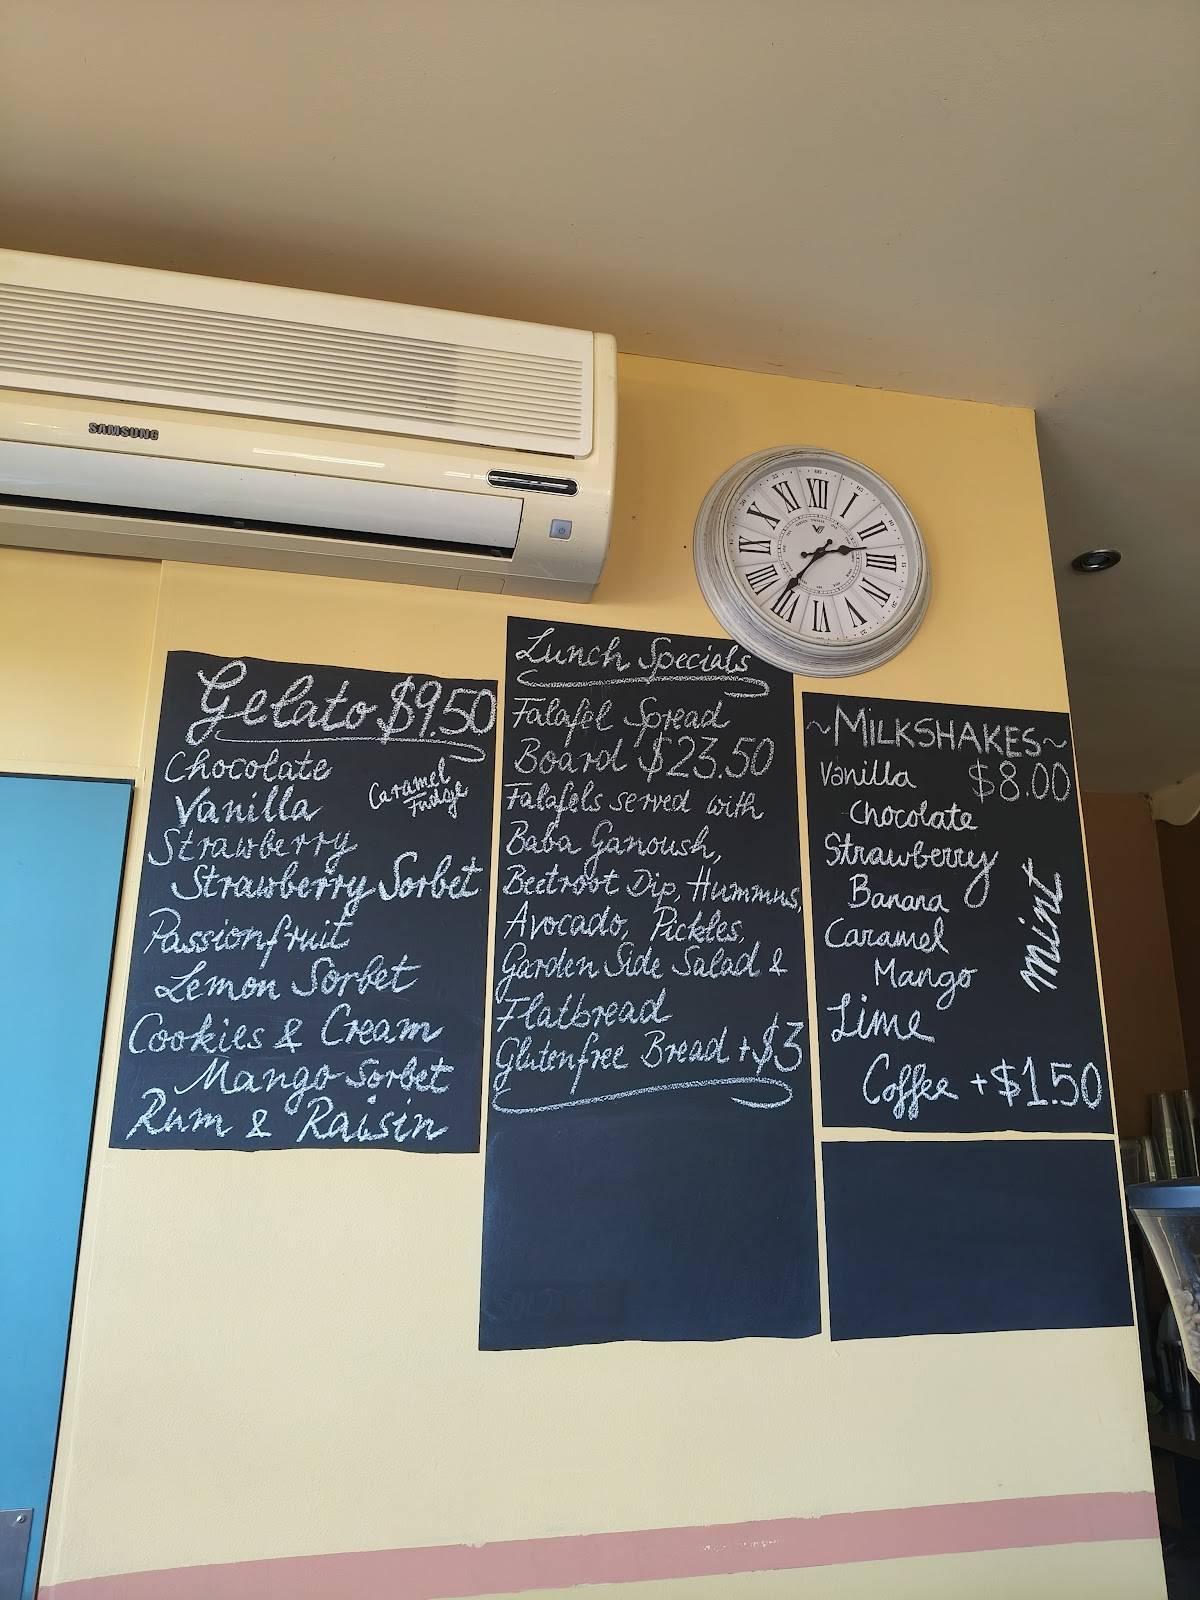 SAMSUNG
XII
I
II
III
IIII
V
VI
VII
VIII
IX
X
XI
Gelato $9.50
Chocolate
Caramel
Fudge
Vanilla
Strawberry
Strawberry Sorbet
Passionfruit
Lemon Sorbet
Cookies & Cream
Mango Sorbet
Rum & Raisin
Lunch Specials
Falafel Spread
Board $23.50
Falafels served with
Baba Ganoush,
Beetroot Dip, Hummus,
Avocado, Pickles,
Garden Side Salad &
Flatbread
Glutenfree Bread +$3
~MILKSHAKES~
Vanilla $8.00
Chocolate
Strawberry
Banana
Caramel
Mango
Mint
Lime
Coffee +$1.50